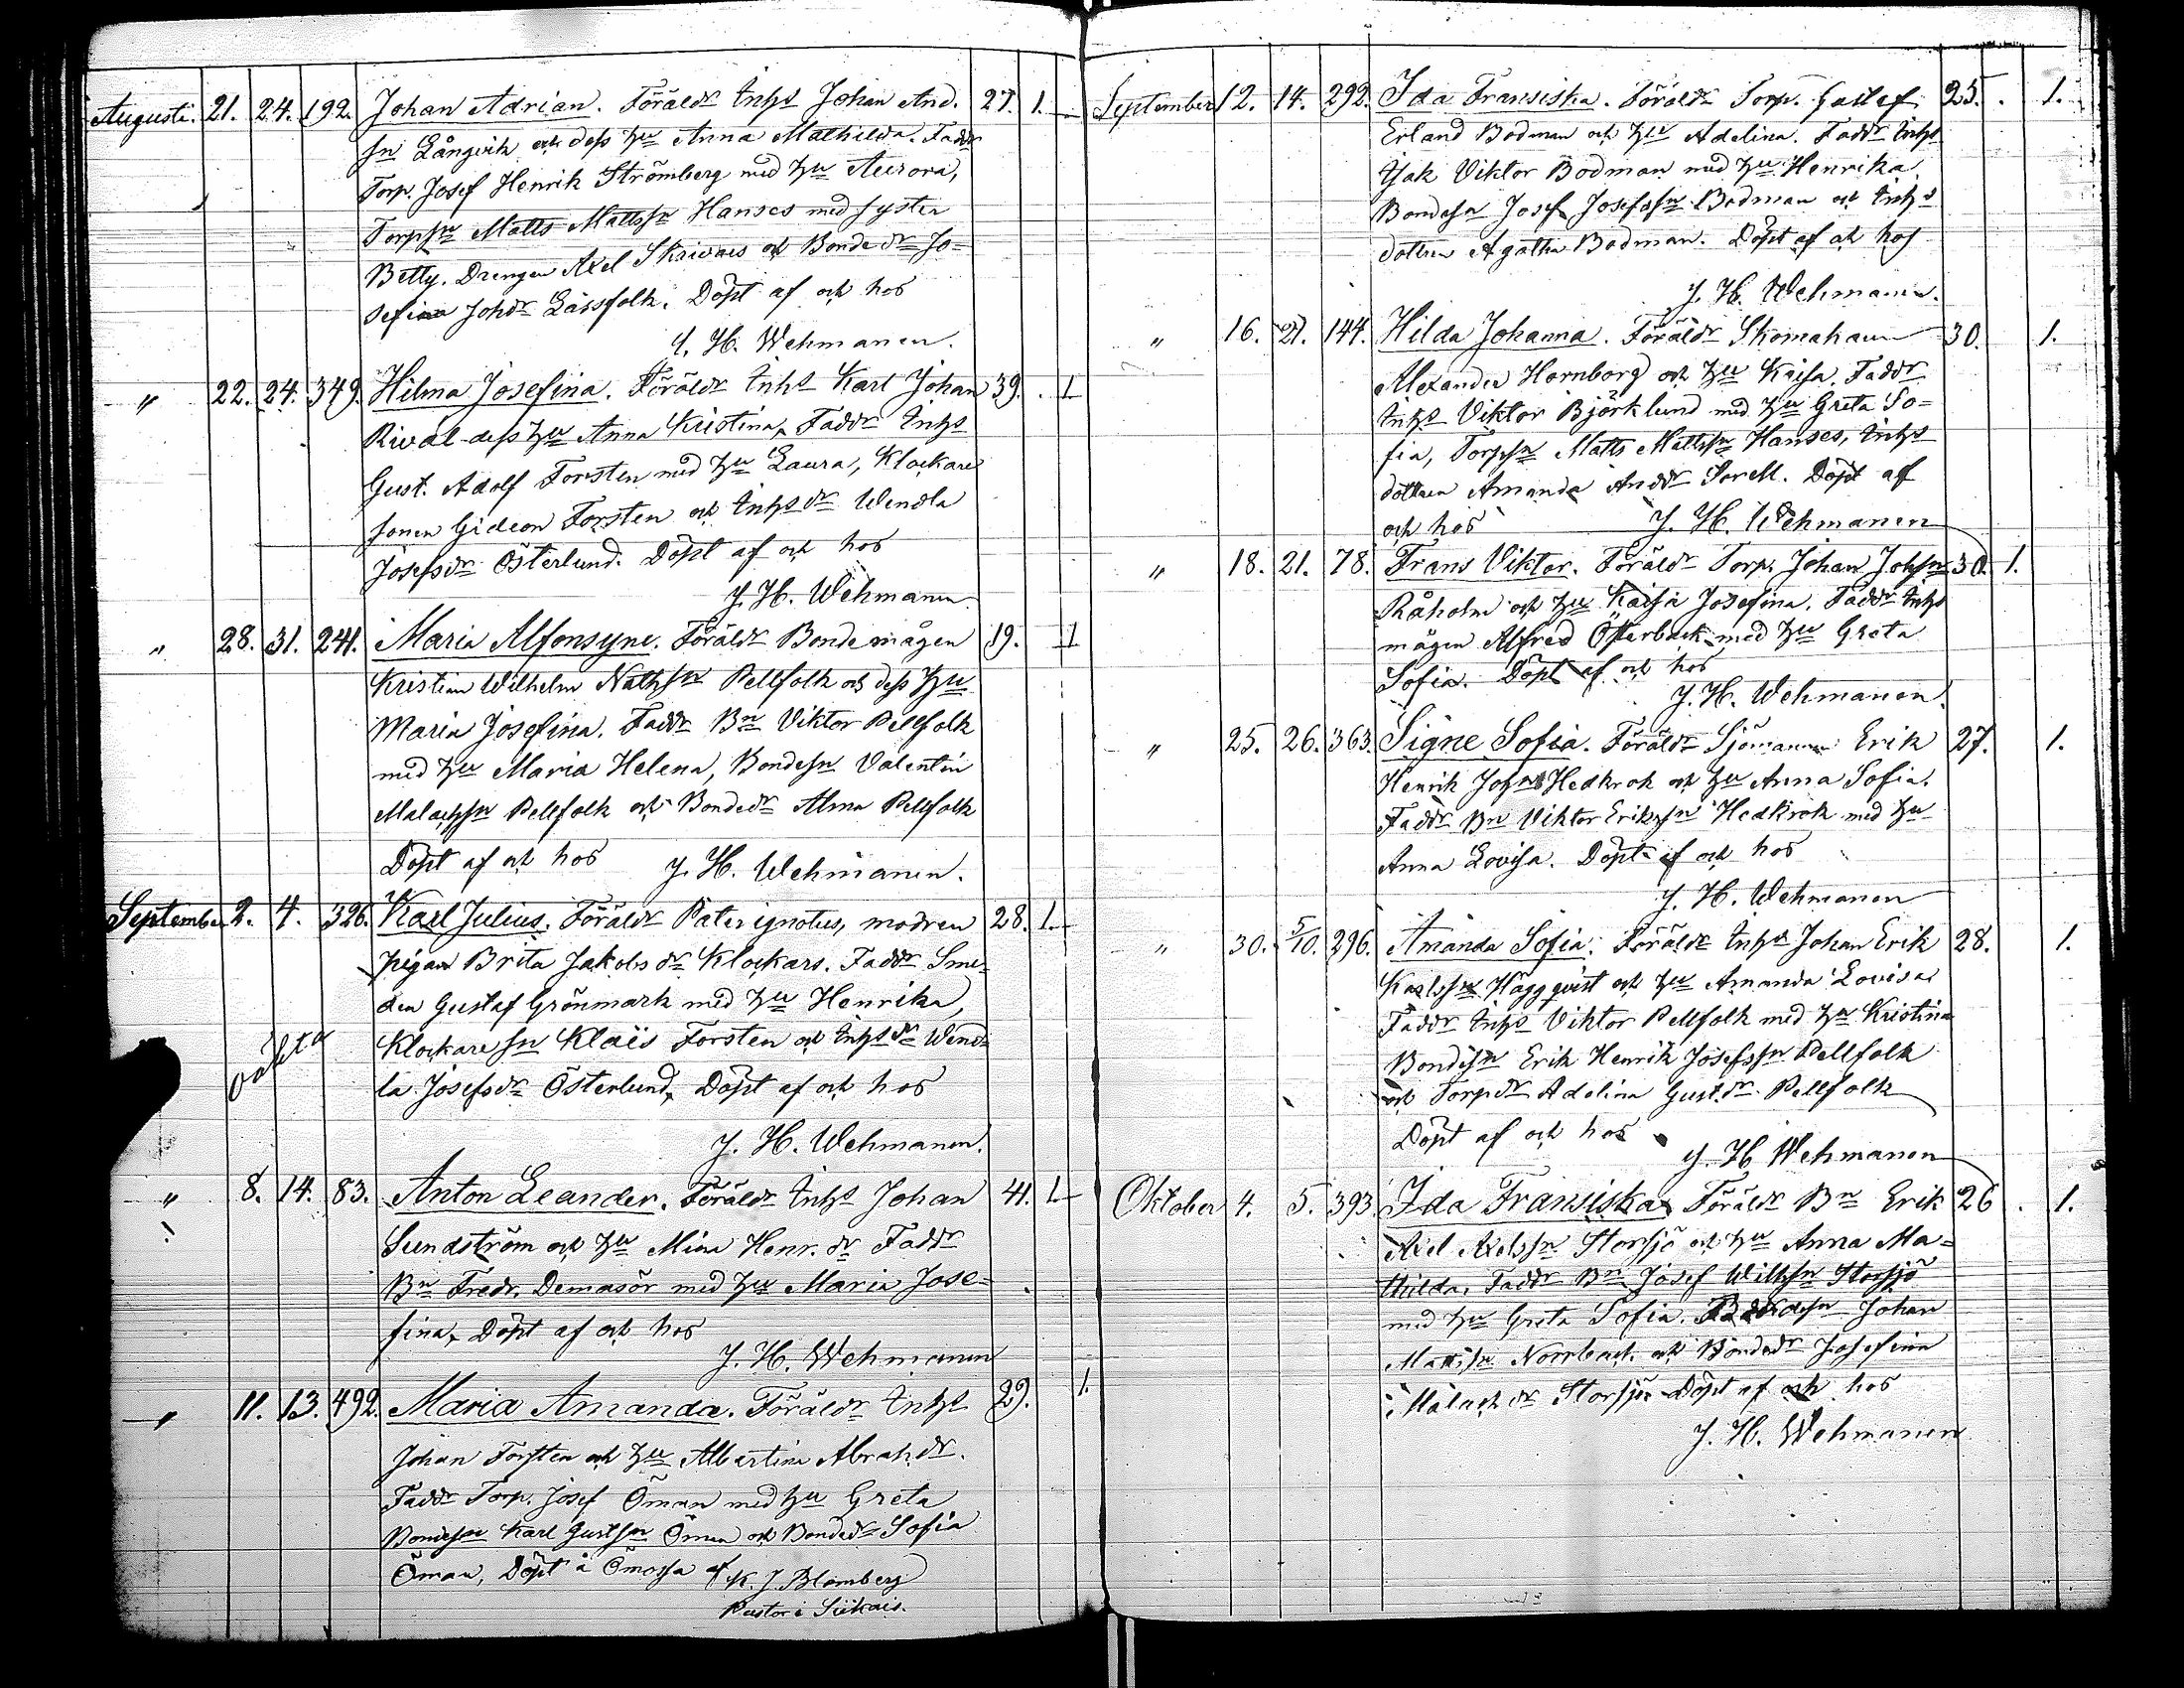 Augusti. 21. 24. 192. Johan Adrian. Föräldr Inhs Johan And. 27. 1.
sn Långvik och dess hu Anna Mathilda. Faddr
Torp. Josef Henrik Strömberg med hu Aurora,
Torpsn Matts Mattssn Hanses med syster
Betty. Drengen Axel Skrivars och Bondedr Jo=
sefina Johdr Lassfolk. Döpt af och hos
J. H. Wehmanen.
" 22. 24. 349. Hilma Josefina. Föräldr Inhs Karl Johan 39. 1
Rival dess hu Anna Kristina, Faddr Inhs
Gust. Adolf Forsten med hu Laura, Klockare
sonen Gideon Forsten och Inhsdr Wendla
Josefsdr Österlund. Döpt af och hos
J. H. Wehmanen
" 28. 31. 241. Maria Alfonsyne. Föräldr Bondemågen 19. 1
Kristian Wilhelm Nathsn Pellfolk och dess hu
Maria Josefina. Faddr Bn Viktor Pellfolk
med hu Maria Helena, Bondesn Valentin
Malachsn Pellfolk och Bondedr Alma Pellfolk
Döpt af och hos J. H. Wehmanen.
September 2. 4. 326. Karl Julius. Föräldr Pater ignotus, modren 28. 1.
pigan Brita Jakobsdr Klockars. Faddr Sme=
den Gustaf Grönmark med hu Henrika,
Klockaresn Klaës Forsten och Inhsdr Wend=
oäkta
la Josefsdr Österlund, Döpt af och hos
J. H. Wehmanen.
" 8. 14. 83. Anton Leander. Föräldr Inhs Johan 41. 1
Sundström och hu Mina Henr. dr Faddr
Bn Fredr. Demasör med hu Maria Jose=
fina, Döpt af och hos
J. H. Wehmanen
" 11. 13. 492. Maria Amanda. Föräldr Inhs 29. 1.
Johan Forsten och hu Albertina Abrahdr.
Faddr Torp. Josef Öman med hu Greta
Bondesn Karl Gustsn Öman och Bondedr Sofia
Öman, Döpt i Ömossa af K. J. Blomberg
Pastor i Siikais.
September 12. 14. 292. Ida Fransiska. Föräldr Torp. Gustaf 25. 1.
Erland Bodman och hu Adelina. Faddr Inhs
Isak Viktor Bodman med hu Henrika
Bondesn Josef Josefssn Bodman och Inhs
dottren Agatha Bodman. Döpt af och hos
J. H. Wehmanen.
" 16. 21. 144. Hilda Johanna. Föräldr Skomakaren 30. 1.
Alexander Hornborg och hu Kajsa. Faddr
Inhs Viktor Björklund med hu Greta So=
fia, Torpsn Matts Mattssn Hanses, Inhs
dottren Amanda Anddr Sorell. Döpt af
och hos J. H. Wehmanen
" 18. 21. 78. Frans Viktor. Föräldr Torp. Johan Johsn 30. 1.
Råholm och hu Kajsa Josefina. Faddr Inhs
mågen Alfred Österback med hu Greta
Sofia. Döpt af och hos
J. H. Wehmanen.
" 25. 26. 363. Signe Sofia. Föräldr Sjömannen Erik 27. 1.
Henrik Johns Hedkrok och hu Anna Sofia.
Faddr Bn Viktor Erikssn Hedkrok med hu
Anna Lovisa. Döpt af och hos
J. H. Wehmanen
" 30. 5/10. 296. Amanda Sofia. Föräldr Inhs Johan Erik 28. 1.
Karlssn Häggqvist och hu Amanda Lovisa
Faddr Inhs Viktor Pellfolk med hu Kristina
Bondesn Erik Henrik Josefssn Pellfolk
och Torpdr Adelina Gust.dr Pellfolk
Döpt af och hos
J. H. Wehmanen
Oktober 4. 5. 393. Ida Fransiska Föräldr Bn Erik 26 1.
Axel Axelssn Storsjö och hu Anna Ma=
thilda. Faddr Bn Josef Willssn Storsjö
med hu Greta Sofia. Johan
Mattssn Norrback och Bondedr Josefina
Malachdr Storsjö Döpt af och hos
J. H. Wehmanen